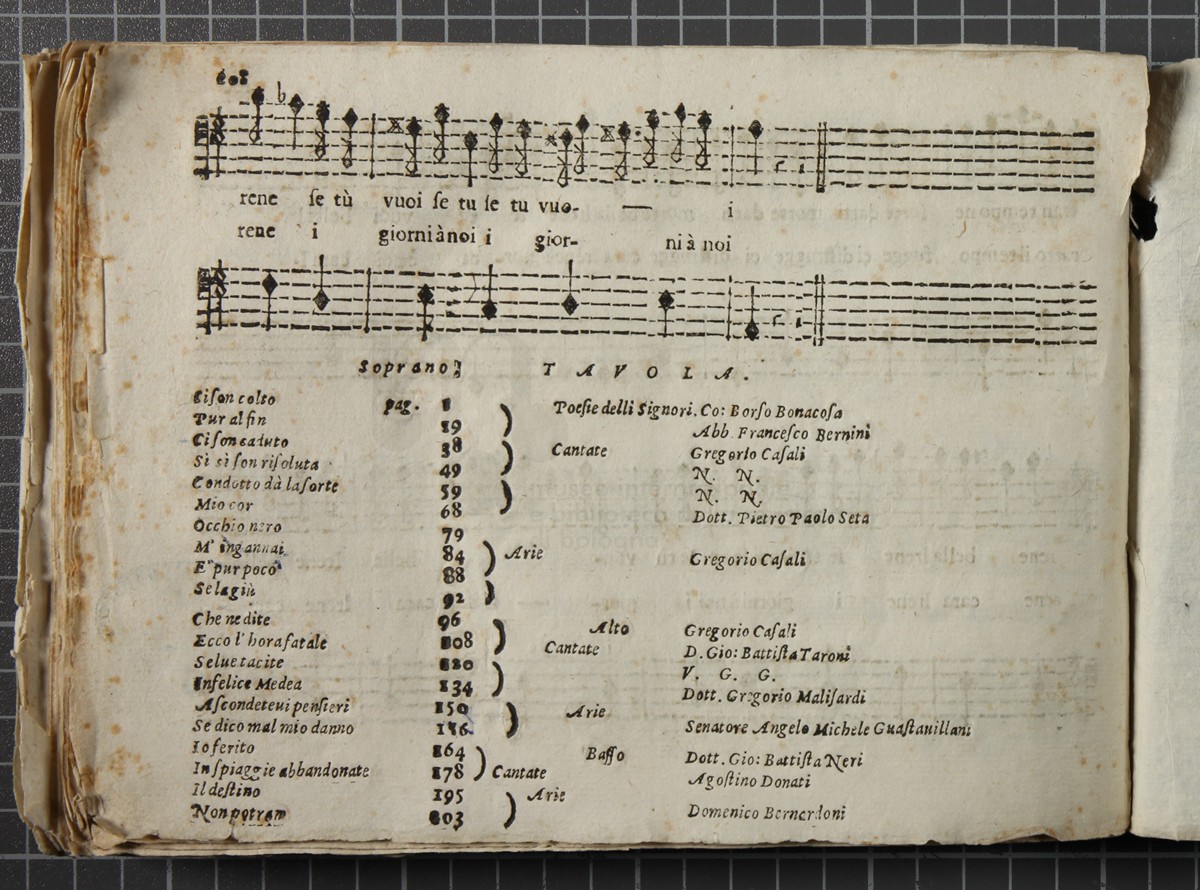 rene se tù vuoi se tu se tu vuo- — i
rene i giorni à noi i gior- ni à noi
Soprano TAVOLA.
Ci son colto pag. 1 Poesie delli Signori. Co: Borso Bonacosa
Pur al fin 19 Abb. Francesco Bernini
Ci son caduto 38 Cantate Gregorio Casali
Sì sì son risoluta 49 N. N.
Condotto dà la sorte 59 N. N.
Mio cor 68 Dott. Pietro Paolo Seta
Occhio nero 79
M' ingannai 84 Arie Gregorio Casali
E' pur poco 88
Se la giù 92
Che ne dite 96 Alto Gregorio Casali
Ecco l' hora fatale 108 Cantate D. Gio: Battista Taroni
Selue tacite 120 V. G. G.
Infelice Medea 134 Dott. Gregorio Malisardi
Ascondeteui pensieri 150 Arie
Se dico mal mio danno 156 Senatore Angelo Michele Guastauillani
Io ferito 164 Basso Dott. Gio: Battista Neri
In spiaggie abbandonate 178 Cantate Agostino Donati
Il destino 195 Arie
Non potram 203 Domenico Bernardoni